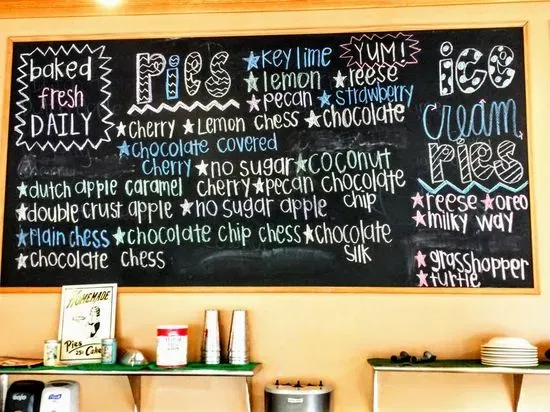 baked
fresh
DAILY
Pies
★key lime
YUM!
★lemon ★reese
★pecan ★strawberry
★cherry ★Lemon chess ★chocolate
★chocolate covered
cherry ★no sugar ★coconut
★dutch apple caramel cherry ★pecan chocolate
★double crust apple ★no sugar apple chip
★plain chess ★chocolate chip chess ★chocolate
★chocolate chess silk
ice
cream
pies
★reese ★oreo
★milky way
★grasshopper
★turtle
HOMEMADE
Pies
25¢
Cake
GOJO
PURELL